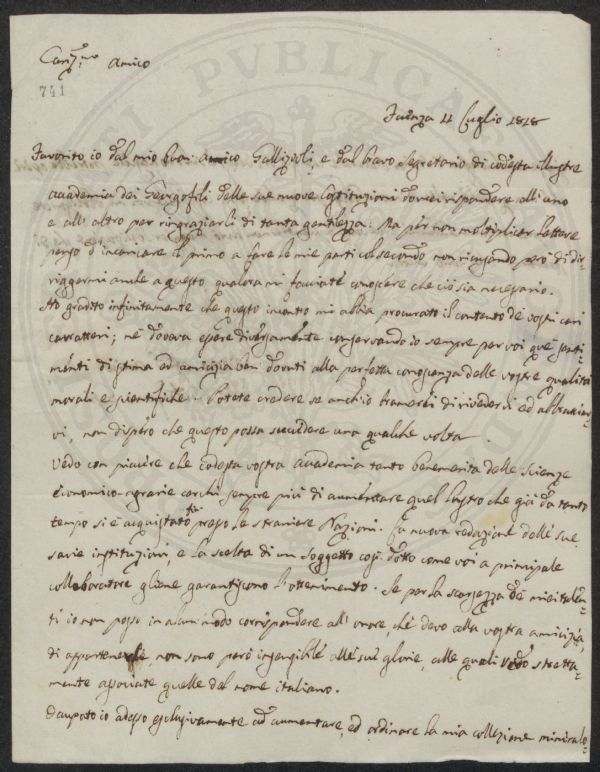 Cariss.mo Amico
741
Faenza 4 Luglio 1818
Favorito io dal mio buon amico Gallizioli, e dal bravo Segretario di codesta illustre
accademia dei Georgofili delle sue nuove Costituzioni dovrei rispondere all'uno
e all'altro per ringraziarli di tanta gentilezza: Ma per non moltiplicar lettere
penso d'incaricare il primo a fare le mie parti col secondo non ricusando però di di-
riggermi anche a questo qualora mi facciate conoscere che ciò sia necessario.
Ho gradito infinitamente che questo incontro mi abbia procurato il contento de' vostri cari
carratteri; né doveva essere diversamente conservando io sempre per voi que' senti-
menti di stima ed amicizia ben dovuti alla perfetta conoscenza delle vostre qualità
morali e scientifiche. Potete credere se anch'io bramerei di rivedervi ed abbracciar-
vi, non dispero che questo possa succedere una qualche volta.
Vedo con piacere che codesta vostra accademia tanto benemerita delle Scienze
economico-agrarie cerchi sempre più di aumentare quel lustro che già da tanto
tempo si è acquistato presso le straniere Nazioni. La nuova redazione delle sue
savie instituzioni, e la scelta di un Soggetto così dotto come voi a principale
collaboratore gliene garantiscono l'ottenimento. Se per la scarsezza de' miei talen-
ti io non posso in alcun modo corrispondere all'onore, che devo alla vostra amicizia,
di appartenerle non sono però insensibile alle sue glorie, alle quali vedo stretta-
mente associate quelle del nome italiano.
Occupato io adesso esclusivamente ad aumentare, ed ordinare la mia collezione mineralo-